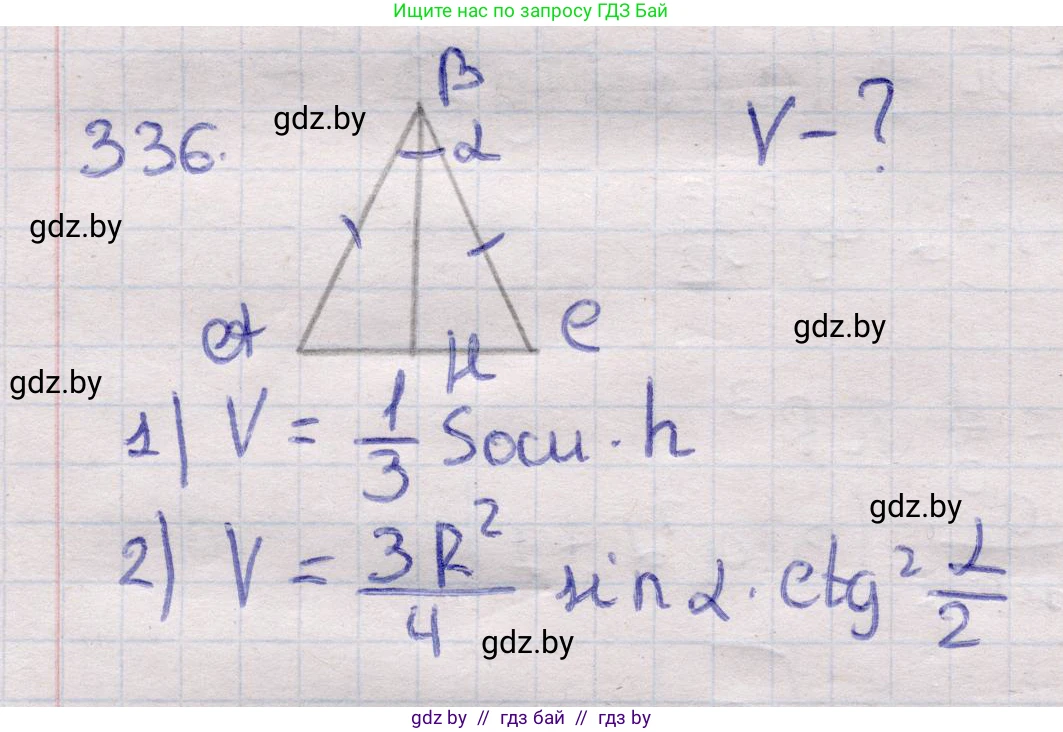 Ищите нас по запросу ГДЗ Бай
B
336.
gdz.by
α
V - ?
gdz.by
A
C
gdz.by
H
gdz.by
1) V = 1/3 Sосн · h
gdz.by
2) V = 3R²/4 sin α · ctg² α/2
gdz.by
gdz by // гдз бай // гдз by